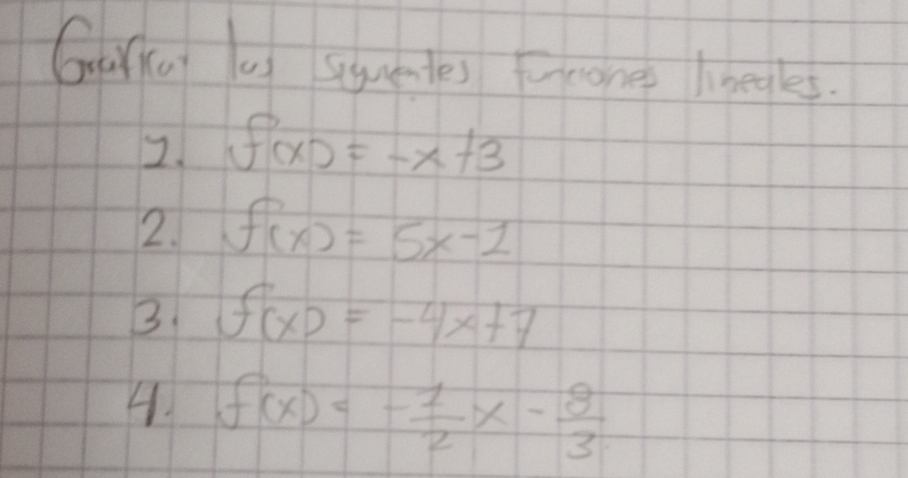 Graficar las siguientes funciones lineales.
1. f(x) = -x+3
2. f(x) = 5x-1
3. f(x) = -4x+7
4. f(x) = -1/2 x - 8/3